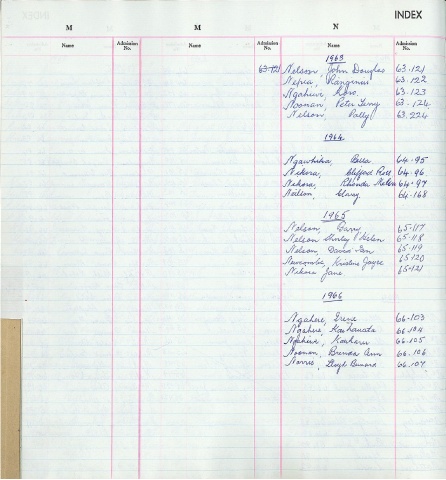 INDEX
M M N
Name Admission No. Name Admission No. Name Admission No.
1963
63-121 Nelson, John Douglas 63.121
Nepia, Ranginui 63.122
Ngahewi, 63.123
Noonan, Peter Terry 63.124
Nelson, Polly 63.224
1964
Ngawhika, Bella 64-95
Nikora, Clifford 64-96
Nikora, Rhonda Helen 64-97
64-168
1965
Nelson, Barry 65-117
Nelson Shirley Helen 65-118
Nelson, David Ian 65-119
Newcombe, Kristine Joyce 65-120
Nikora Jane 65-121
1966
Ngahere, Irene 66-103
Ngahere, 66.104
Ngahere, 66-105
Noonan, Brenda Ann 66.106
Norris, Lloyd 66.107